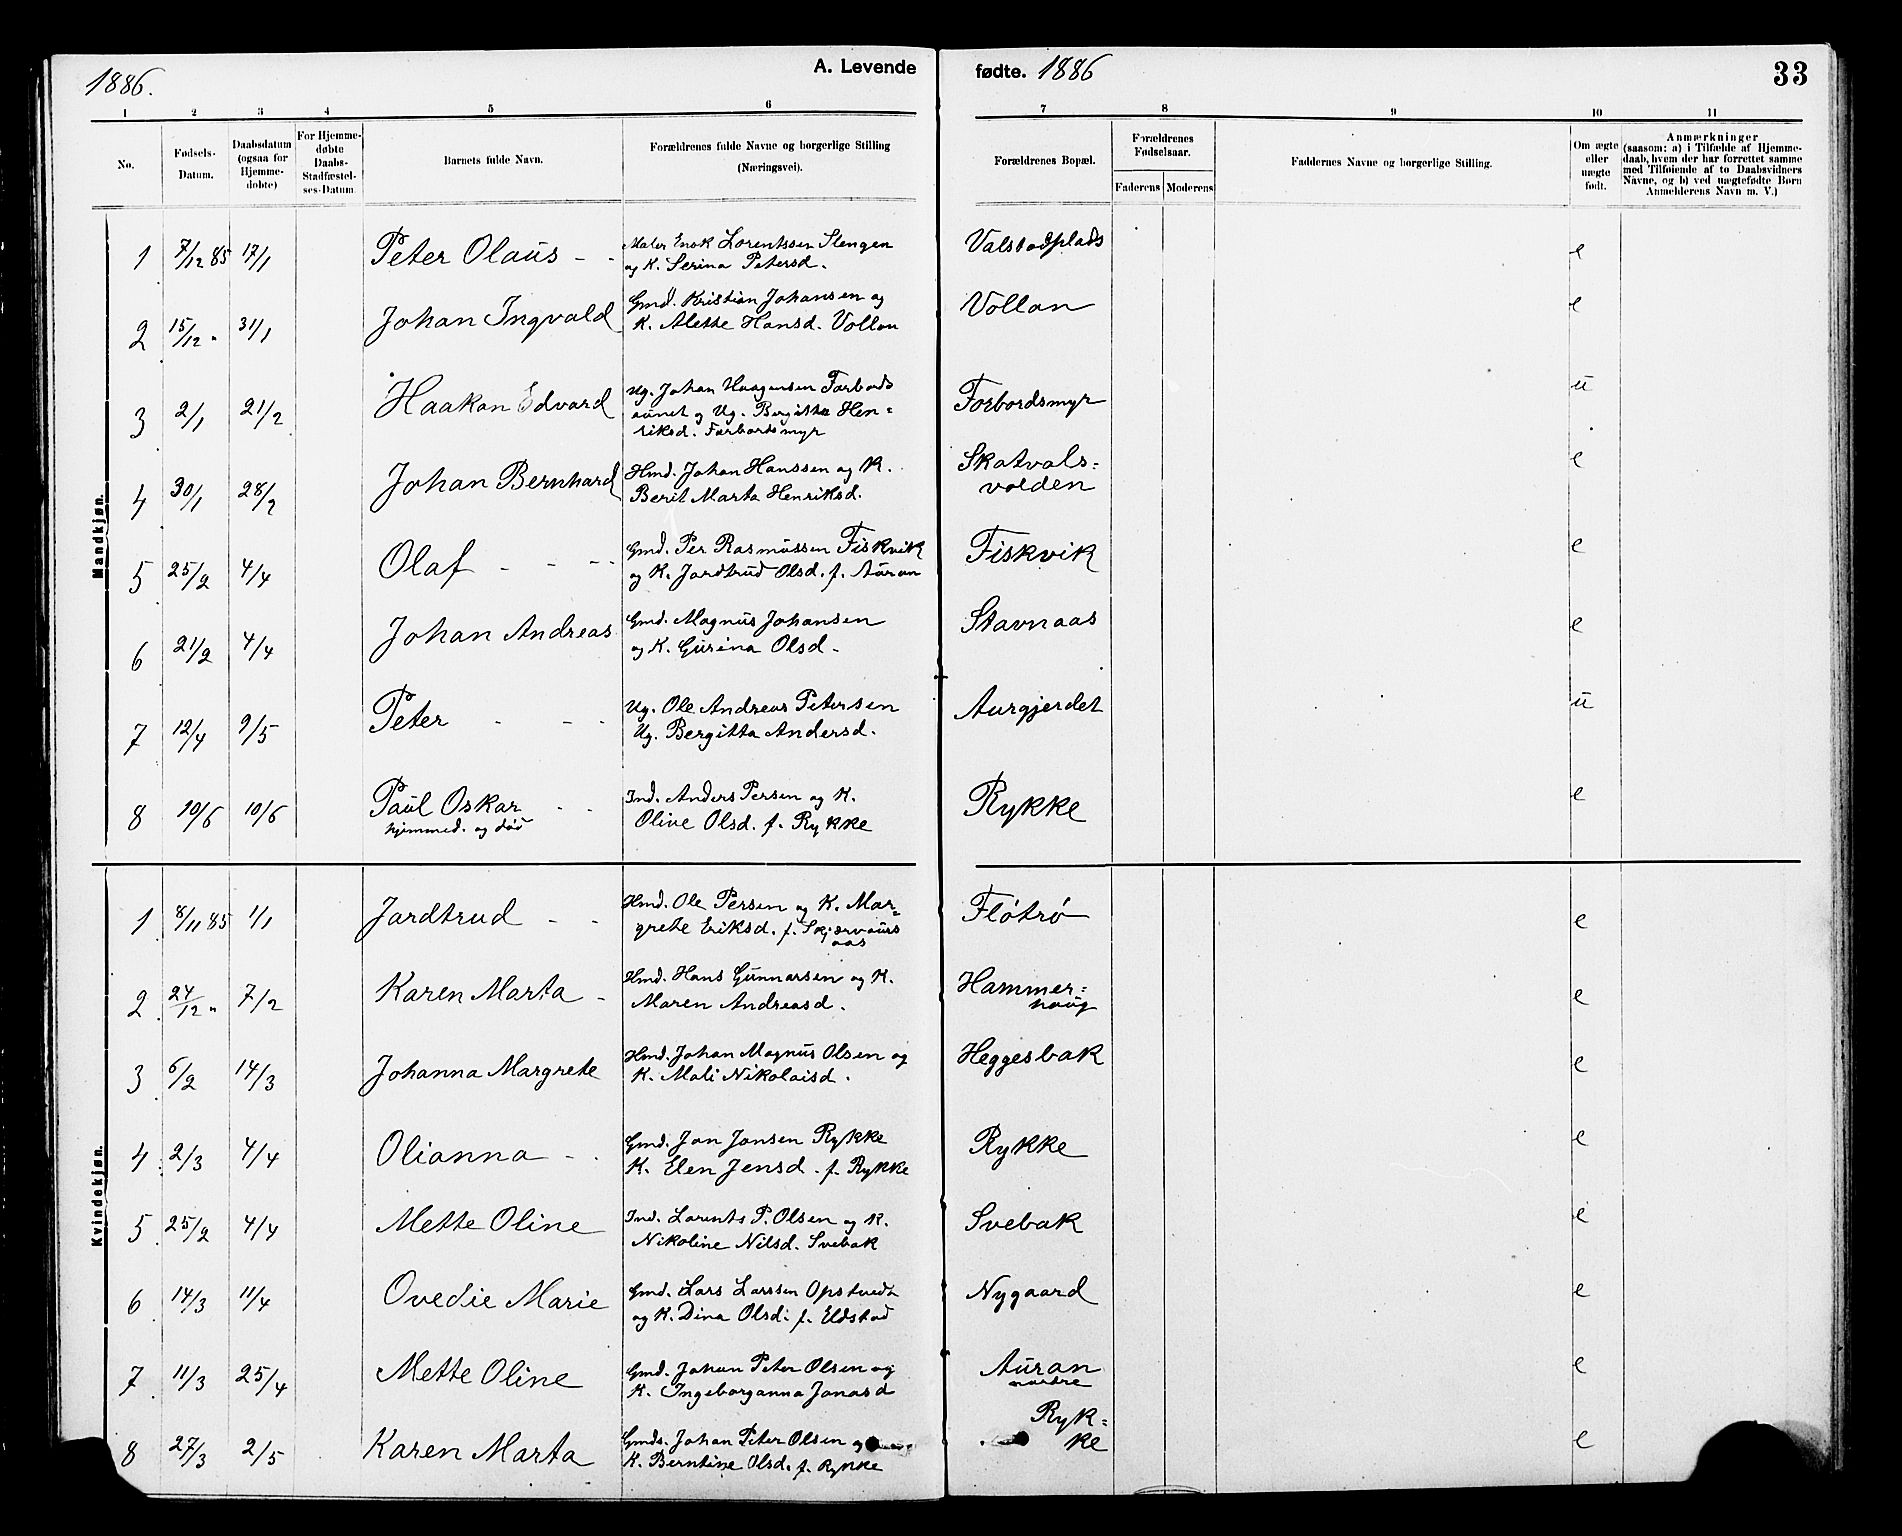 1886.
A. Levende
fødte. 1886
33
1 2 3 4 5 6 7 8 9 10 11
No.
Fødsels-
Datum.
Daabsdatum
(ogsaa for
Hjemme-
døbte)
For Hjemme-
døbte
Daabs-
Stadfæstel-
ses-Datum.
Barnets fulde Navn.
Forældrenes fulde Navne og borgerlige Stilling
(Næringsvei).
Forældrenes Bopæl.
Forældrenes
Fødselsaar.
Faderens Moderens
Faddernes Navne og borgerlige Stilling.
Om ægte
eller
uægte
født.
Anmærkninger
(saasom: a) i Tilfælde af Hjemme-
daab, hvem der har forrettet samme
med Tilføiende af to Daabsvidners
Navne, og b) ved uægtefødte Børn
Anmelderens Navn m. V.)
Mandkjøn.
1 7/12 85 17/1 Peter Olaus - - Maler Enok Lorentssen Slengen Valstadplads e
og K. Serina Petersd.
2 15/12 " 31/1 Johan Ingvald Gmd. Kristian Johansen og Vollan e
K. Alette Hansd. Vollan
3 2/1 21/2 Haakon Edvard Ug. Johan Haagensen Forbords Forbordsmyr u
aunet og Ug. Bergitta Hen=
riksd. Forbordsmyr
4 30/1 28/2 Johan Bernhard Hmd. Johan Hanssen og K. Skatvals= e
Berit Marta Henriksd. volden
5 25/2 4/4 Olaf - - - - Gmd. Per Rasmussen Fiskvik Fiskvik e
og K. Jardtrud Olsd. f. Auran
6 21/2 4/4 Johan Andreas Gmd. Magnus Johansen Stavnaas e
og K. Gurina Olsd.
7 12/4 9/5 Peter - - - Ug. Ole Andreas Petersen Aurgjerdet u
Ug. Bergitta Andersd.
8 10/6 10/6 Paul Oskar - - Ind. Anders Persen og K. Rykke e
hjemmed. og død Olive Olsd. f. Rykke
Kvindekjøn.
1 8/11 85 1/1 Jardtrud - - Hmd. Ole Persen og K. Mar= Fløtrø e
grete Eriksd. f. Skjærvaurs
aas
2 24/12 " 7/2 Karen Marta - Hmd. Hans Gunnarsen og K. Hammer= e
Maren Andreasd. haug
3 6/2 14/3 Johanna Margrete Hmd. Johan Magnus Olsen og Heggesbak e
K. Mali Nikolaisd.
4 2/3 4/4 Olianna - - Gmd. Jon Jonsen Rykke Rykke e
K. Elen Jensd. f. Rykke
5 25/2 4/4 Mette Oline Ind. Lorents P. Olsen og K. Svebak e
Nikoline Nilsd. Svebak
6 14/3 11/4 Ovedie Marie Gmd. Lars Larssen Opstvedt Nygaard e
og K. Dina Olsd. f. Eldstad
7 11/3 25/4 Mette Oline Gmd. Johan Peter Olsen og Auran e
K. Ingeborganna Jonasd nordre
8 27/3 2/5 Karen Marta Gmds. Johan Peter Olsen og Ryk= e
K. Berntine Olsd. f. Rykke ke